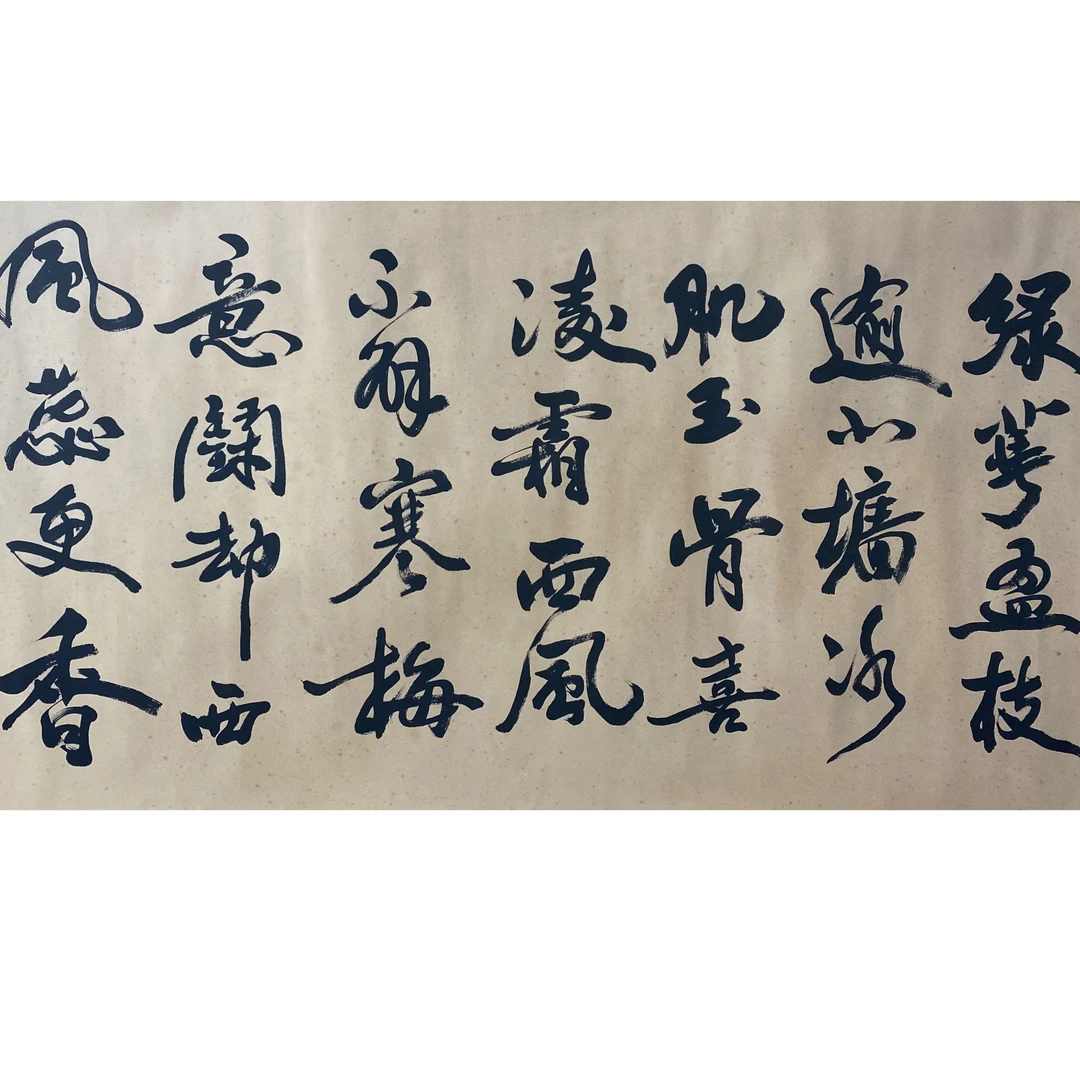 绿萼盈枝
逾小墙冰
肌玉骨喜
凌霜西風
不解寒梅
意鬪却西
風蕊更香